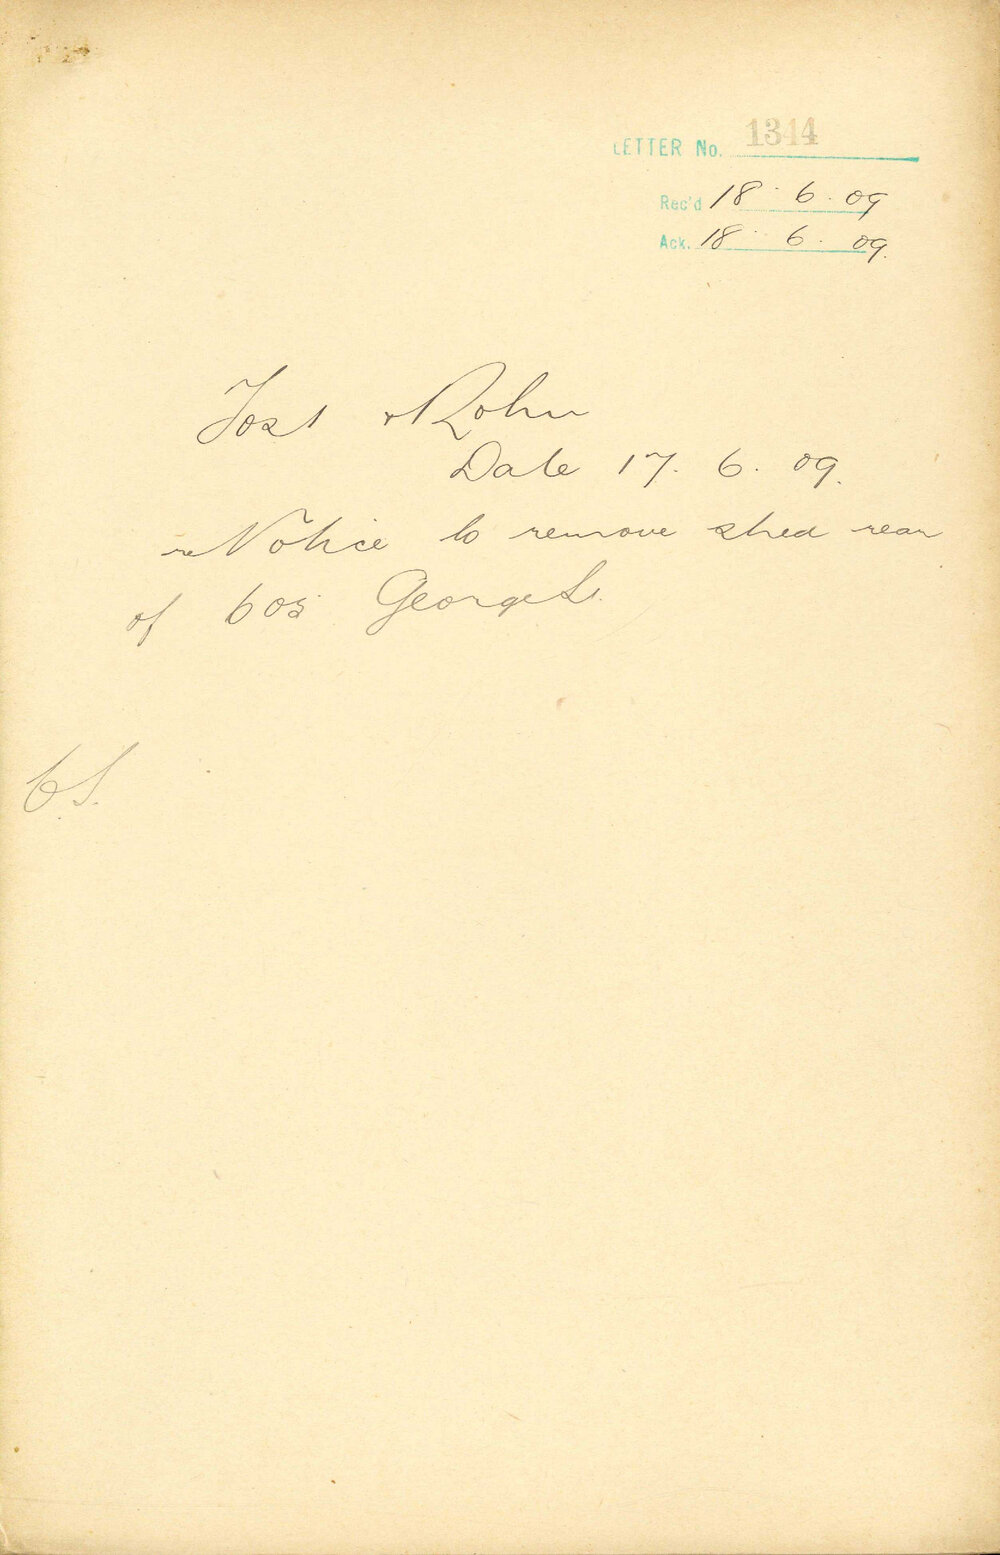 LETTER No. 1344
Rec'd 18. 6. 09
Ack. 18. 6. 09.
Tost & Rohu
Date 17. 6. 09.
re Notice to remove shed rear
of 605 George St.
C.S.